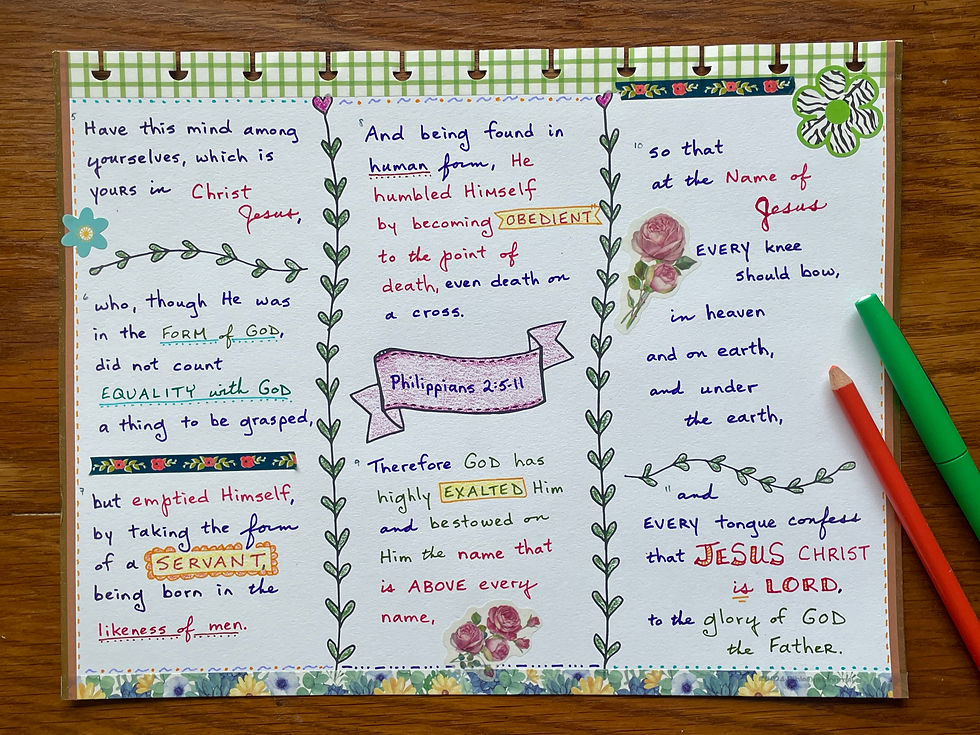 5 Have this mind among
yourselves, which is
yours in Christ
Jesus,
6 who, though He was
in the FORM of GOD,
did not count
EQUALITY with GOD
a thing to be grasped,
7 but emptied Himself,
by taking the form
of a SERVANT,
being born in the
likeness of men.
8 And being found in
human form, He
humbled Himself
by becoming OBEDIENT
to the point of
death, even death on
a cross.
Philippians 2:5-11
9 Therefore GOD has
highly EXALTED Him
and bestowed on
Him the name that
is ABOVE every
name,
10 so that
at the Name of
Jesus
EVERY knee
should bow,
in heaven
and on earth,
and under
the earth,
11 and
EVERY tongue confess
that JESUS CHRIST
is LORD,
to the glory of GOD
the Father.